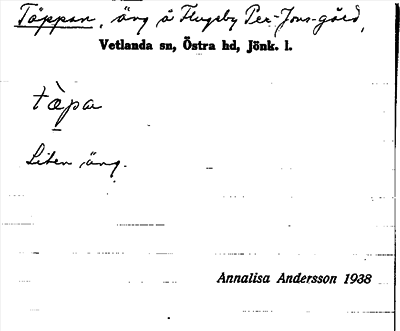 Täppan, äng å Flugeby Per-Jons-gård,
Vetlanda sn, Östra hd, Jönk. l.
tàpa
Liten äng.
Annalisa Andersson 1938